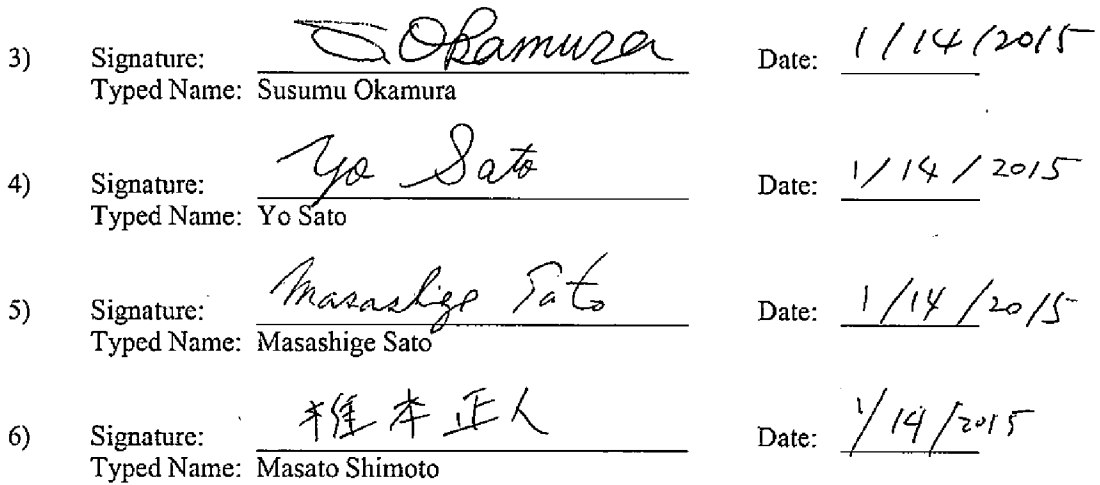 3) Signature: S. Okamura Date: 1/14/2015
Typed Name: Susumu Okamura
4) Signature: Yo Sato Date: 1/14/2015
Typed Name: Yo Sato
5) Signature: Masashige Sato Date: 1/14/2015
Typed Name: Masashige Sato
6) Signature: 椎本正人 Date: 1/14/2015
Typed Name: Masato Shimoto